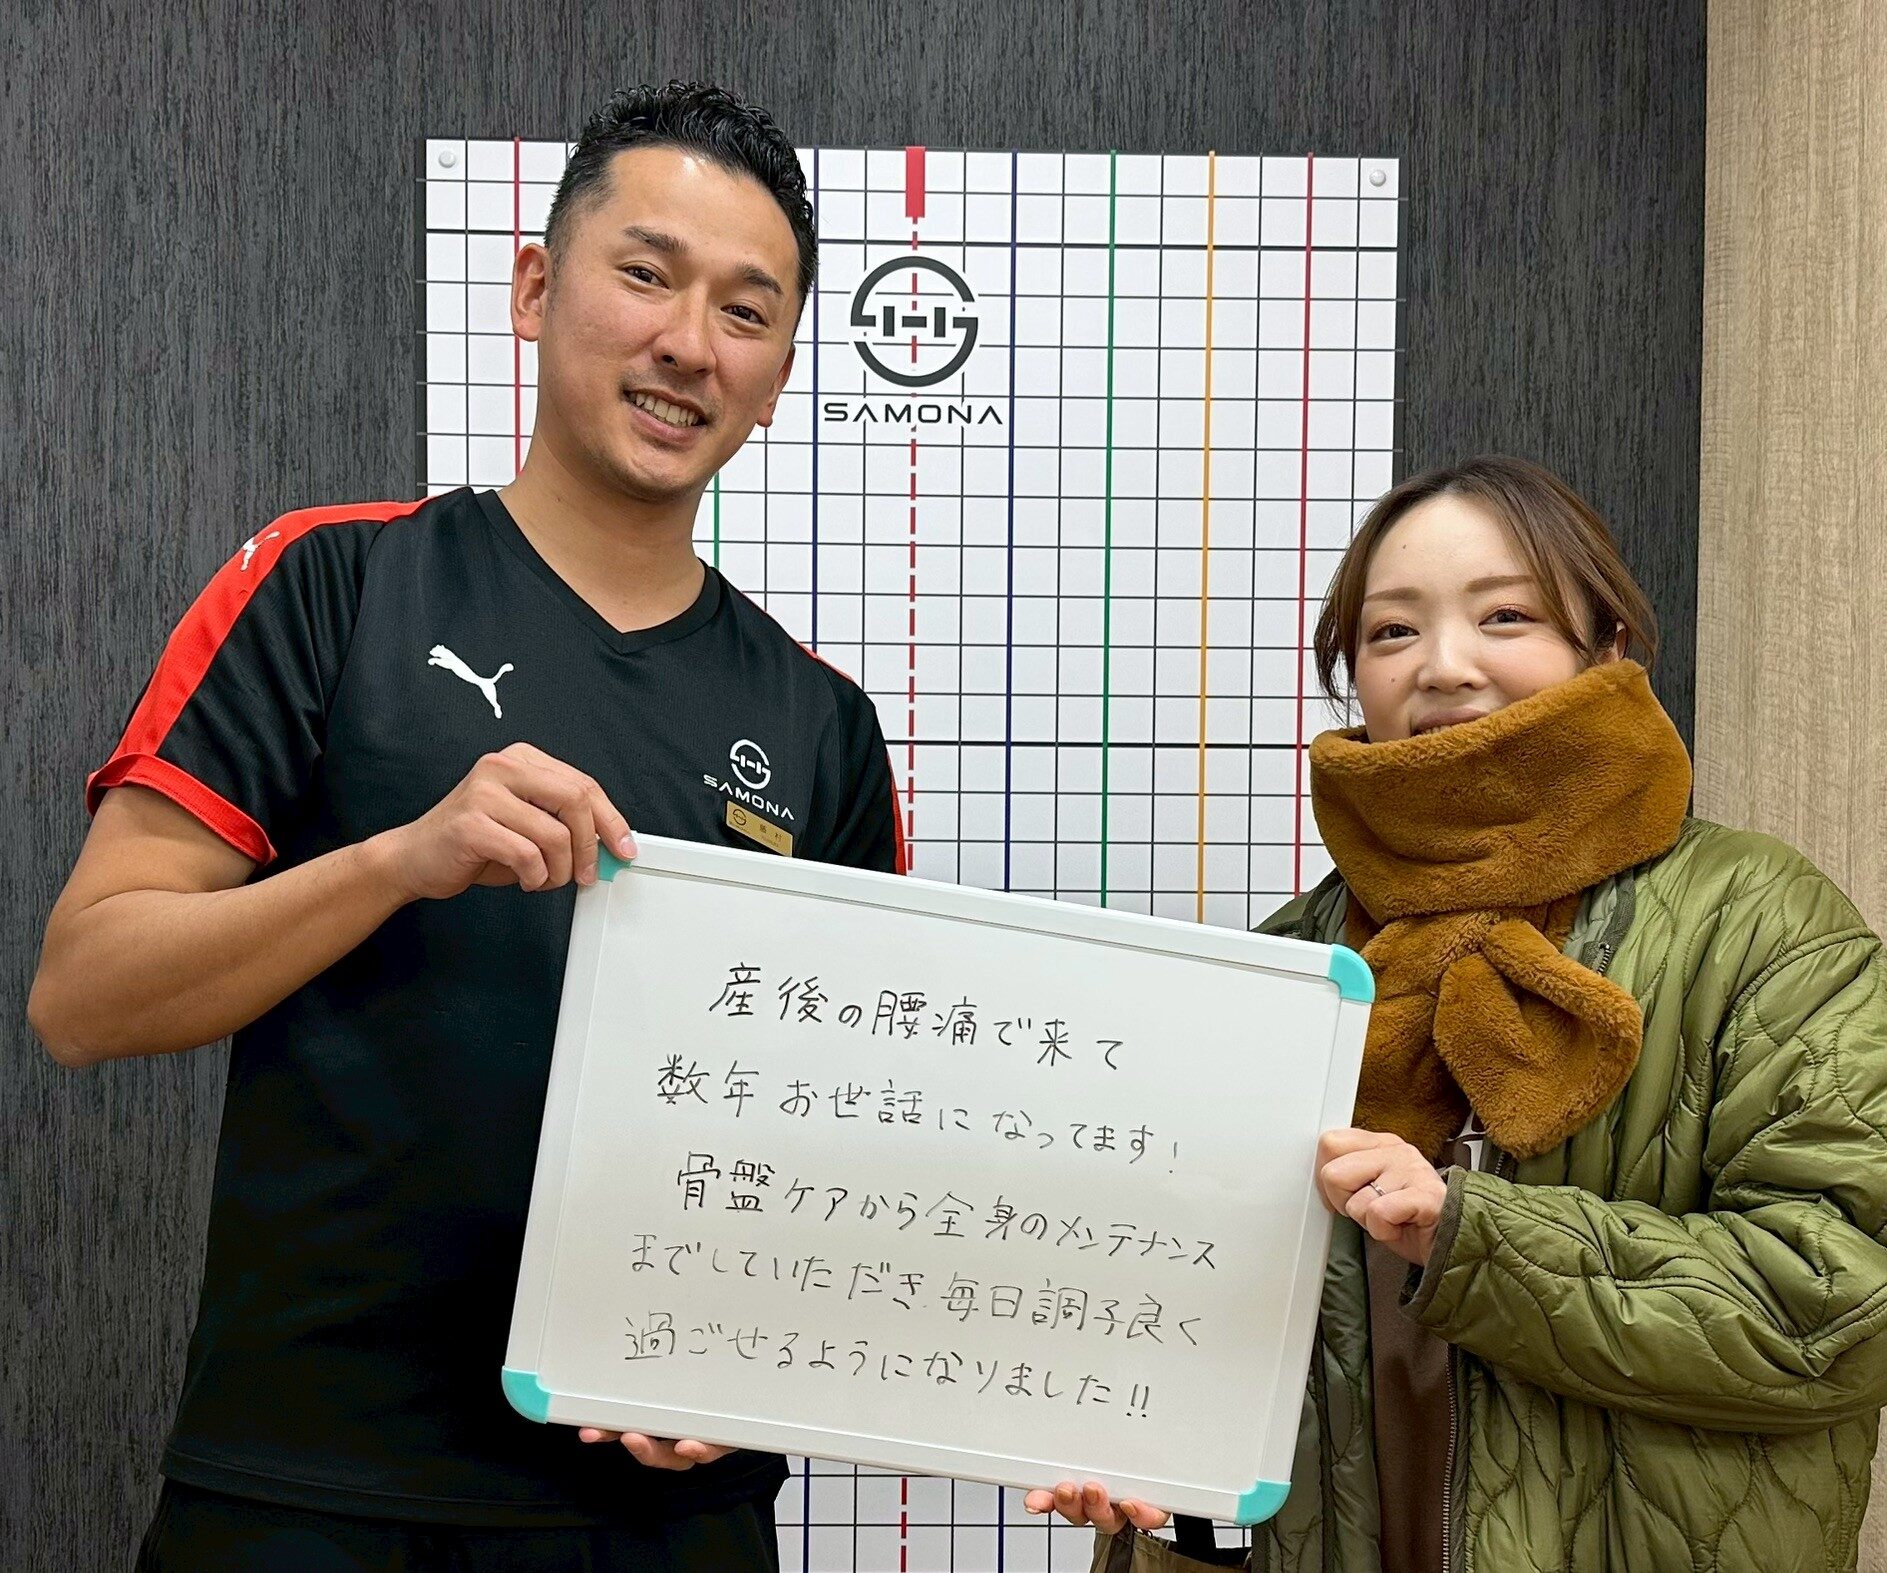 SAMONA
SAMONA
産後の腰痛で来て
数年お世話になってます!
骨盤ケアから全身のメンテナンス
までしていただき毎日調子良く
過ごせるようになりました!!